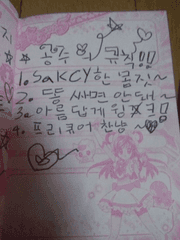 공주의 규칙!!
1. SaKCY한 몸짓~
2. 똥 싸면 안돼~
3. 아름답게 윙크!
4. 프리큐어 찬양~